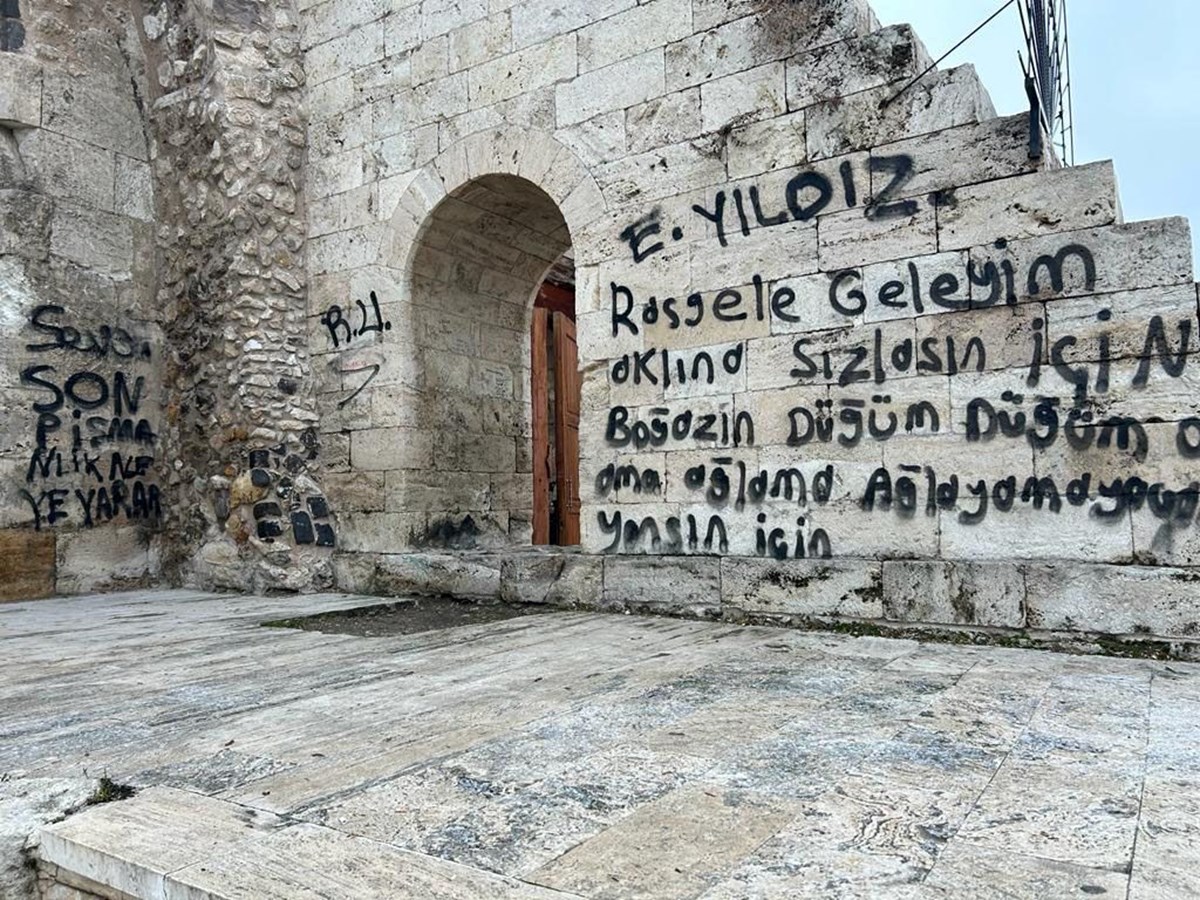 SON
PİŞMA
NLIK NE
YE YARAR
R.U.
E. YILDIZ.
Rasgele Geleyim
aklına Sızlasın için
Boğazın Düğüm Düğüm o
ama ağlama Ağlayama
yansın için